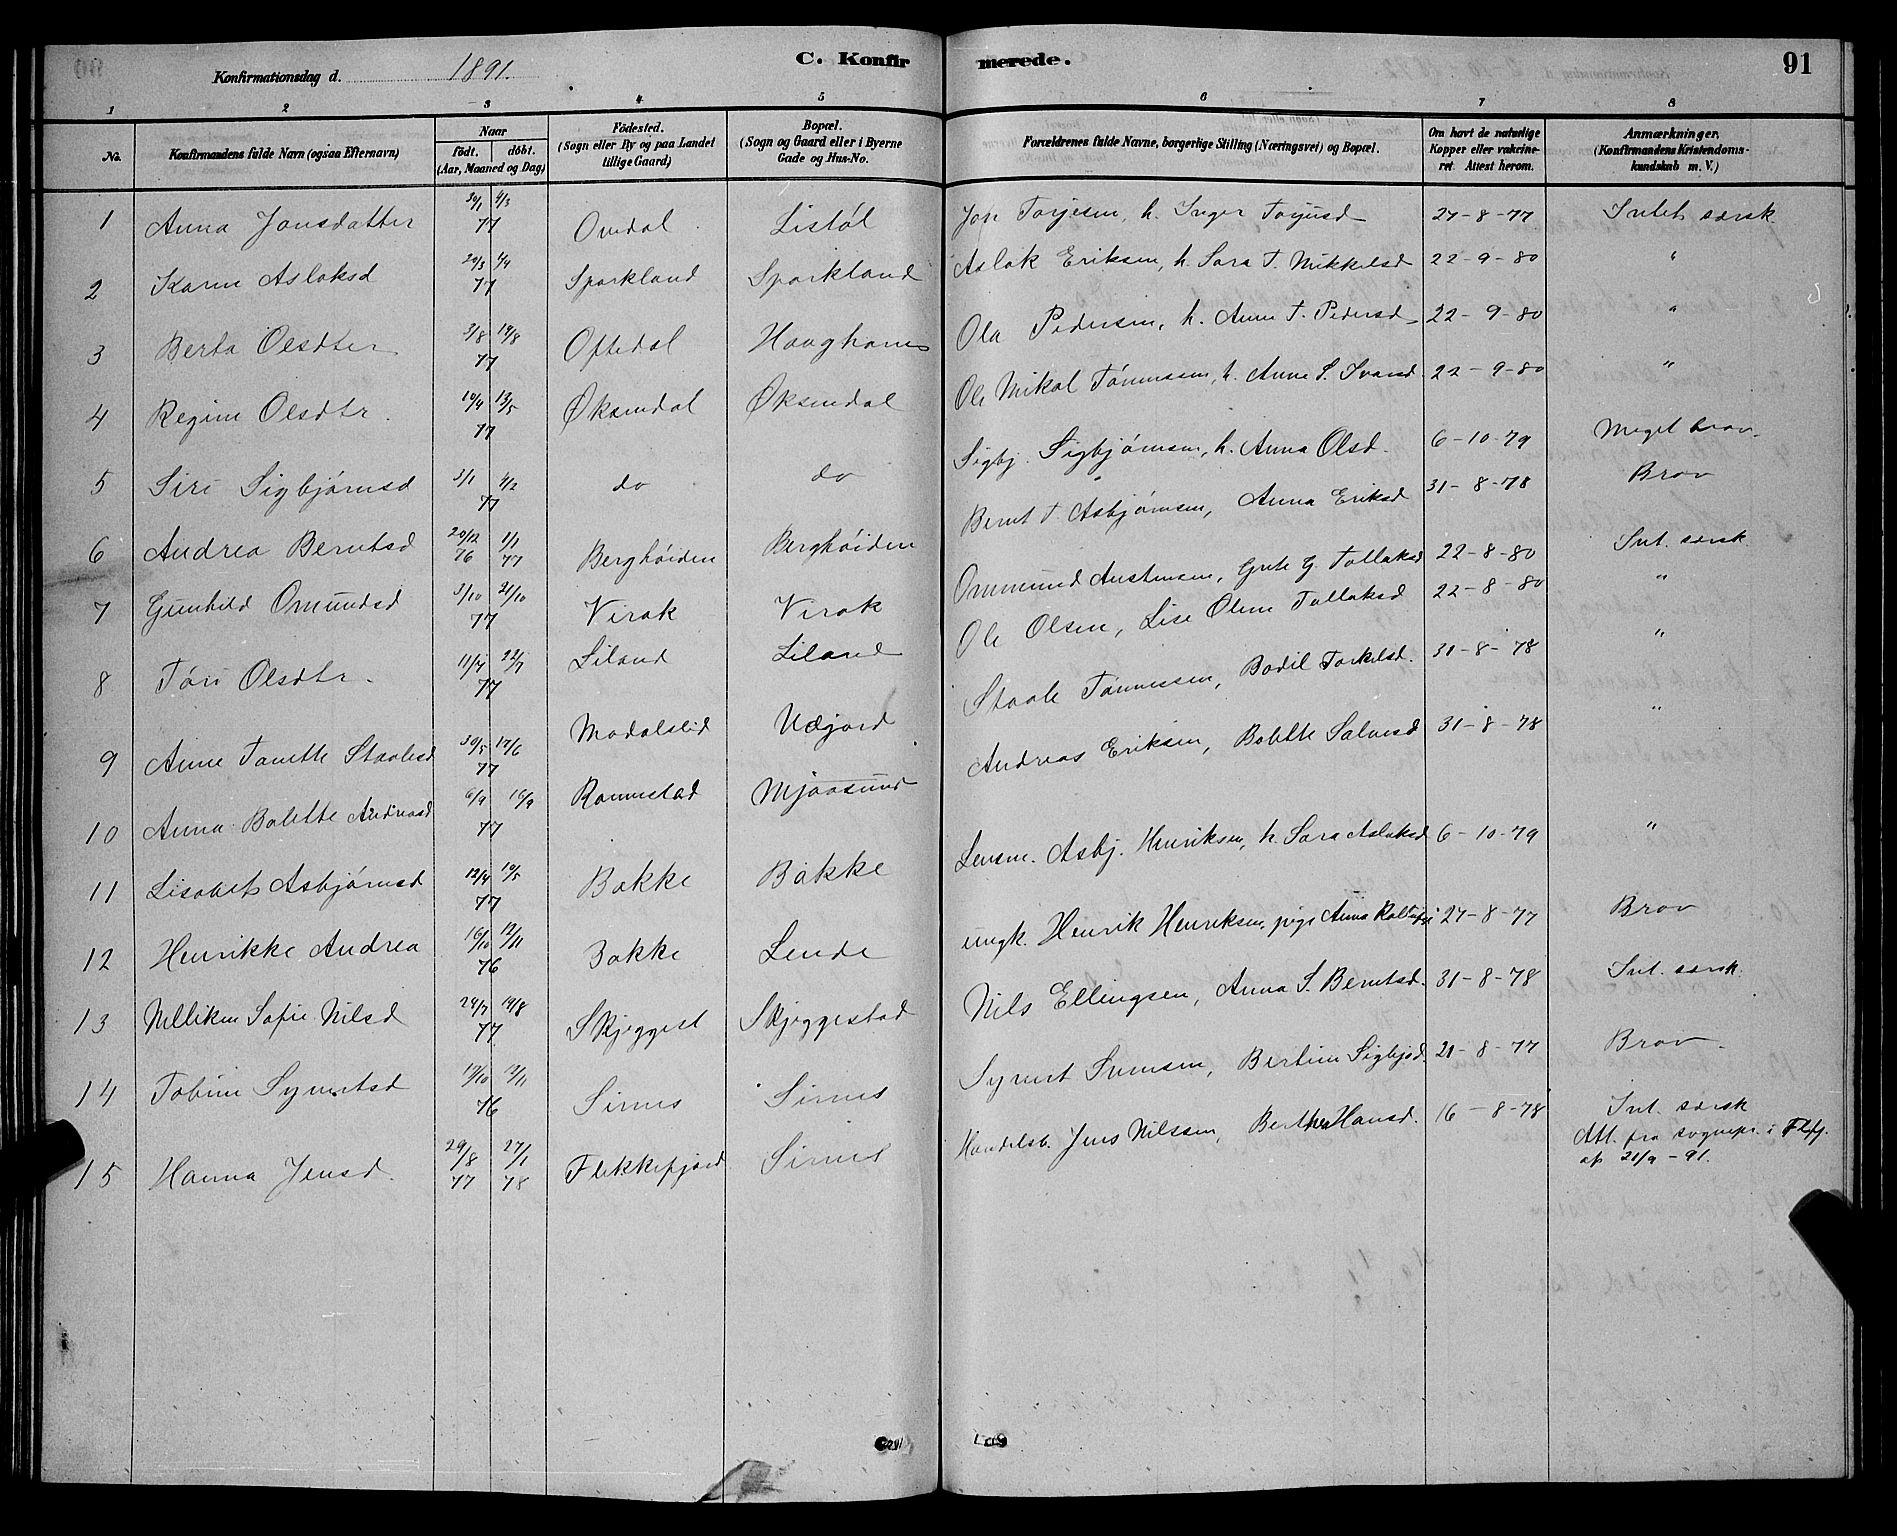 Konfirmationsdag d. 1891. C. Konfirmerede. 91
1 2 3 4 5 6 7 8
No. Konfirmandens fulde Navn (ogsaa Efternavn) Naar födt. döbt. (Aar, Maaned og Dag) Födested. (Sogn eller By og paa Landet tillige Gaard) Bopæl. (Sogn og Gaard eller i Byerne Gade og Hus-No. Forældrenes fulde Navne, borgerlige Stilling (Næringsvei) og Bopæl. Om havt de naturlige Kopper eller vakcineret. Attest herom. Anmærkninger. (Konfirmandens Kristendomskundskab m. V.)
1 Anna Jonsdatter 30/1 4/3 77 Omdal Listöl Jon Torjesen, h. Inger Torjusd 27-8-77 Intet særsk
2 Karen Aslaksd 20/3 4/4 77 Sporkland Sporkland Aslak Eriksen, h. Sara T. Mikkelsd 22-9-80 "
3 Berta Olsdter 3/8 19/8 77 Oftedal Haaghom Ola Pedersen, h. Anne T. Pedersd 22-9-80 "
4 Regine Olsdtr. 10/4 13/5 77 Øksendal Øksendal Ole Mikal Tønnesen, h. Anne S. Svensd. 22-9-80 "
5 Siri Sigbjørnsd 3/1 4/2 77 do do Sigbj. Sigbjørnsen, h. Anna Olsd. 6-10-79 Meget brav.
6 Andrea Berntsd 20/12 76 1/1 77 Berghöiden Berghöiden Bernt T. Asbjørnsen, Anna Eriksd 31-8-78 Brav
7 Gunhild Omundsd 3/10 21/10 77 Virak Virak Ommund Austensen, Grete G. Tollaksd 22-8-80 Int. særsk
8 Tøri Olsdtr. 11/7 22/7 77 Liland Liland Ole Olsen, Lise Oline Tollaksd 22-8-80 "
9 Anne Tonette Staalesd 30/5 17/6 77 Modalslid Uedjord Staale Tønnessen, Bodil Torkelsd. 31-8-78 "
10 Anna Bolette Andreasd 6/9 16/9 77 Rannestad Mjaasund Andreas Eriksen, Bolette Salvesd 31-8-78 "
11 Lisabet Asbjørnsd 12/4 10/5 77 Bakke Bakke Lensm. Asbj. Henriksen, h. Sara Aslaksd 6-10-79 "
12 Henrikke Andrea 16/10 12/11 76 Bakke Lende ungk. Henrik Henriksen, pige Anna 27-8-77 Brav
13 Nelliken Sofie Nilsd 24/7 19/8 77 Skjeggest Skjeggestad Nils Ellingsen, Anna S. Berntsd. 31-8-78 Int. særsk.
14 Tobine Syvertsd 17/10 12/11 76 Sirnes Sirnes Syvert Svensen, Bertine Sigbjd 21-8-77 Brav.
15 Hanna Jensd. 29/8 77 27/1 78 Flekkefjord Sirnes Handelsb. Jens Nilssen, Berthe Hansd. 16-8-78 Int. særsk
Att. fra sognepr. i Flfj.
af 21/9-91.